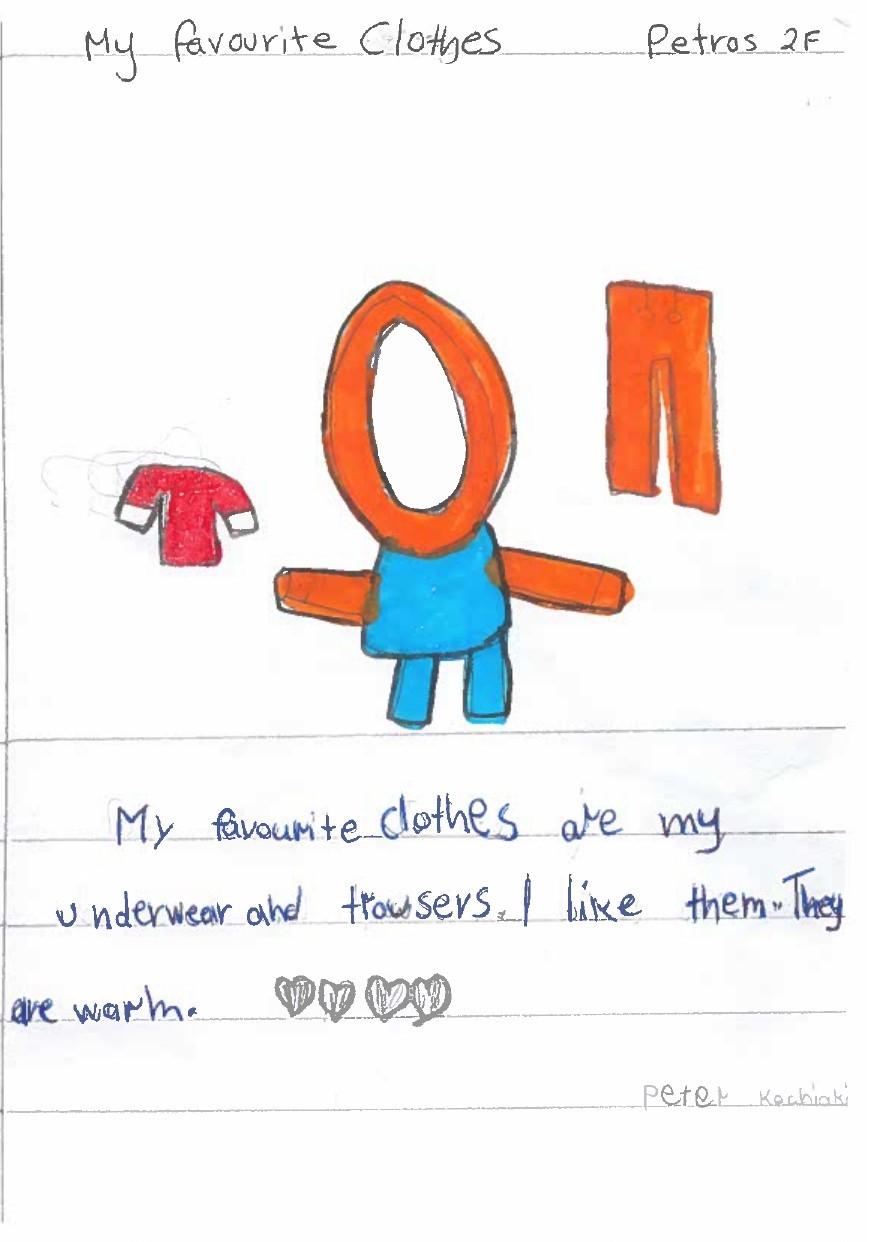 My favourite Clothes Petros 2F
My favourite clothes are my
underwear and trousers. I like them. They
are warm.
Peter